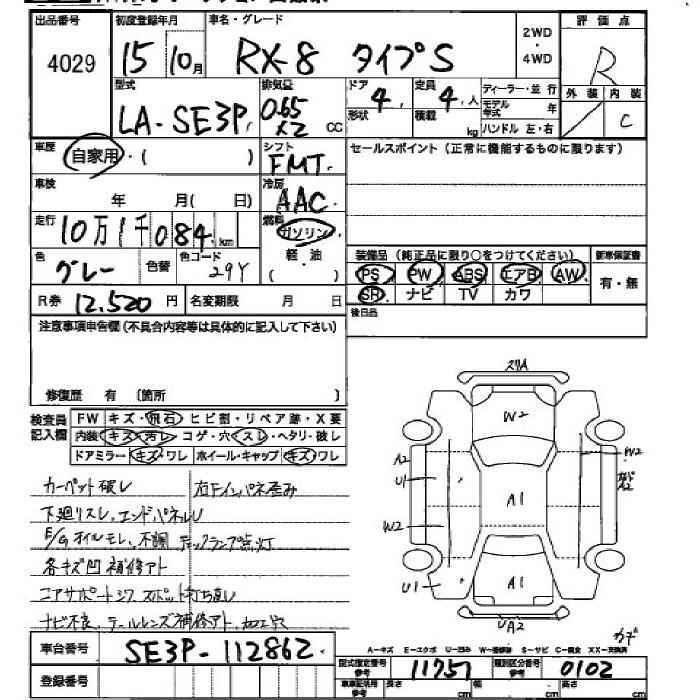 出品番号 初度登録年月 車名・グレード 2WD・4WD 評価点
4029 15年10月 RX-8 タイプS R
型式 排気量 ドア 4 定員 4人 ディーラー・並行 外装 内装
LA-SE3P 0.65×2 cc 形状 積載 kg モデル年式 年 ハンドル 左・右 C
車歴 自家用・( ) シフト FMT セールスポイント (正常に機能するものに限ります)
車検 年 月( 日) 冷房 AAC
走行 10万1千084km 燃料 ガソリン 軽・油 ( )
装備品 (純正品に限り○をつけてください) 新車保証書
色 グレー 色替 色コード 29Y PS PW ABS エアB AW 有・無
R券 12,520円 名変期限 月 日 SR ナビ TV カワ
後日品
注意事項申告欄 (不具合内容等は具体的に記入して下さい)
修復歴 有 〔箇所 〕
検査員記入欄 FW キズ・飛石・ヒビ割・リペア跡・X要
内装 キズ・汚レ・コゲ・穴・スレ・ヘタリ・破レ
ドアミラー キズ・ワレ ホイール・キャップ キズ・ワレ
カーペット破レ 右Fインパネ歪み
下廻リスレ、エンドパネルU
E/Gオイルモレ、不調 チェックランプ点灯
各キズ凹 補修アト
コアサポートシワ スポット打ち直し
ナビ不良、テールレンズ補修アト、加工穴
スリA
W2
A2 W2
U1 A2
A1
W2
U1 A1
UA2
カデ
A-キズ E-エクボ U-凹み W-補修跡 S-サビ C-腐食 XX-交換済
車台番号 SE3P-112862
型式指定番号 参考 11757 類別区分番号 参考 0102
登録番号 車庫証明用 参考 長さ cm 幅 cm 高さ cm